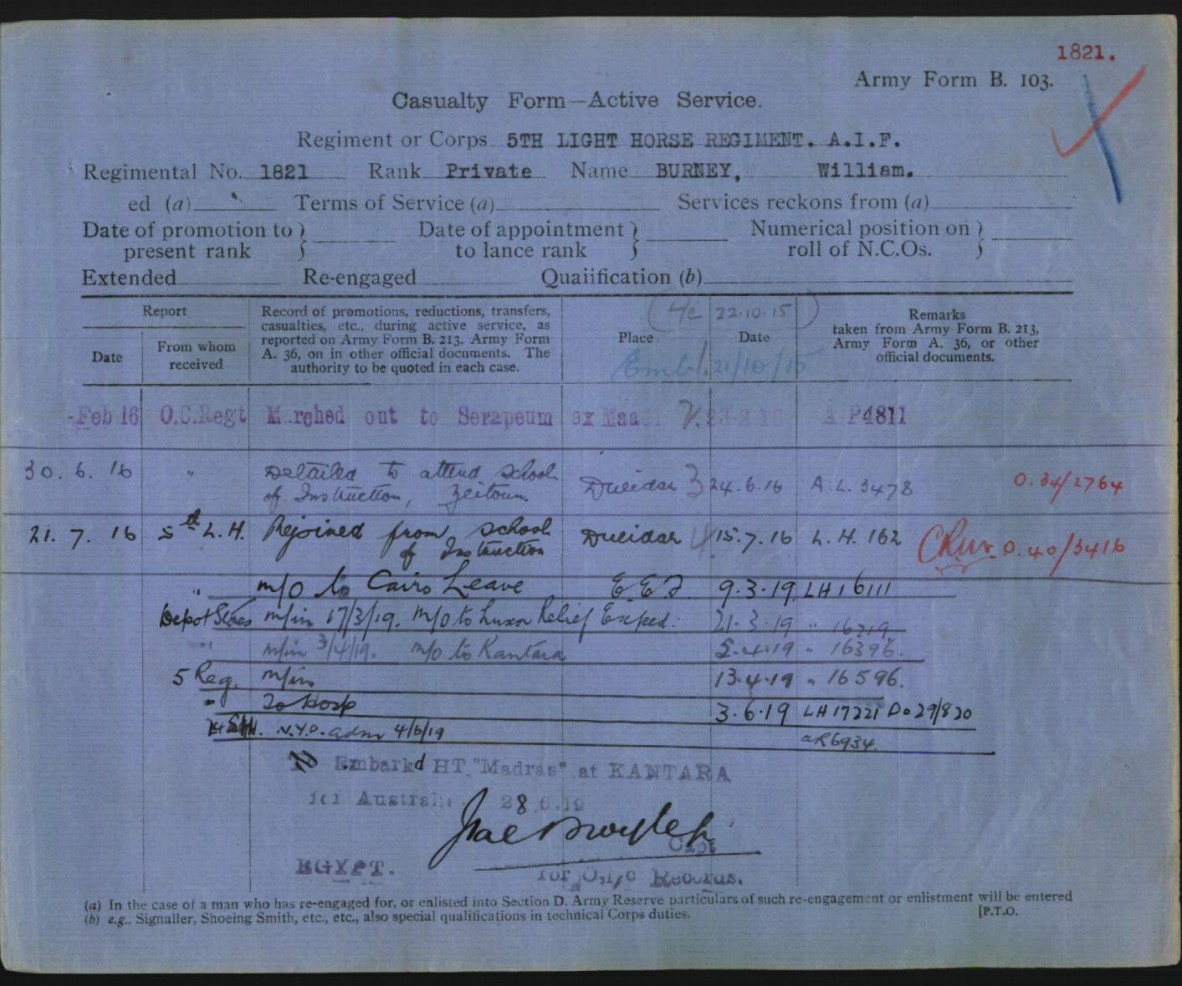 1821.
Army Form B. 103.
Casualty Form—Active Service.
Regiment or Corps 5TH LIGHT HORSE REGIMENT. A.I.F.
Regimental No. 1821 Rank Private Name BURNEY, William.
ed (a) Terms of Service (a) Services reckons from (a)
Date of promotion to } Date of appointment } Numerical position on }
present rank } to lance rank } roll of N.C.Os. }
Extended Re-engaged Qualification (b)
Report
Date
From whom
received
Record of promotions, reductions, transfers,
casualties, etc., during active service, as
reported on Army Form B. 213, Army Form
A. 36, on in other official documents. The
authority to be quoted in each case.
22.10.15
Place Date
Emb. 21/10/15
Remarks
taken from Army Form B. 213,
Army Form A. 36, or other
official documents.
-Feb 16 O.C.Regt M.rched out to Serapeum ex Maa 23-2-16 A P4811
30. 6. 16 " Detailed to attend School Dueidar 3 24.6.16 A.L. 3478 0.34/2764
of Instruction, Zeitoun.
21. 7. 16 5th L.H. Rejoined from School Dueidar 4 15.7.16 L.H. 162 0.40/3416
of Instruction
" m/o to Cairo Leave E.E.F. 9.3.19 LH 16111
Depot m/in 17/3/19. m/o to Luxor Relief 21-3-19 " 16219
m/in 3/4/19. m/o to Kantara 5.4.19 " 16396.
5 Reg. m/in 13.4.19 " 16596.
" To Hosp 3.6.19 LH 17221 Do 29/820
N.Y.D. adm 4/6/19 aR6934
Embarkd HT."Madras" at KANTARA
for Austral 28.6.19
Capt
EGYPT. for O,i/c Records.
(a) In the case of a man who has re-engaged for, or enlisted into Section D. Army Reserve particulars of such re-engagement or enlistment will be entered
(b) e.g., Signaller, Shoeing Smith, etc., etc., also special qualifications in technical Corps duties. [P.T.O.